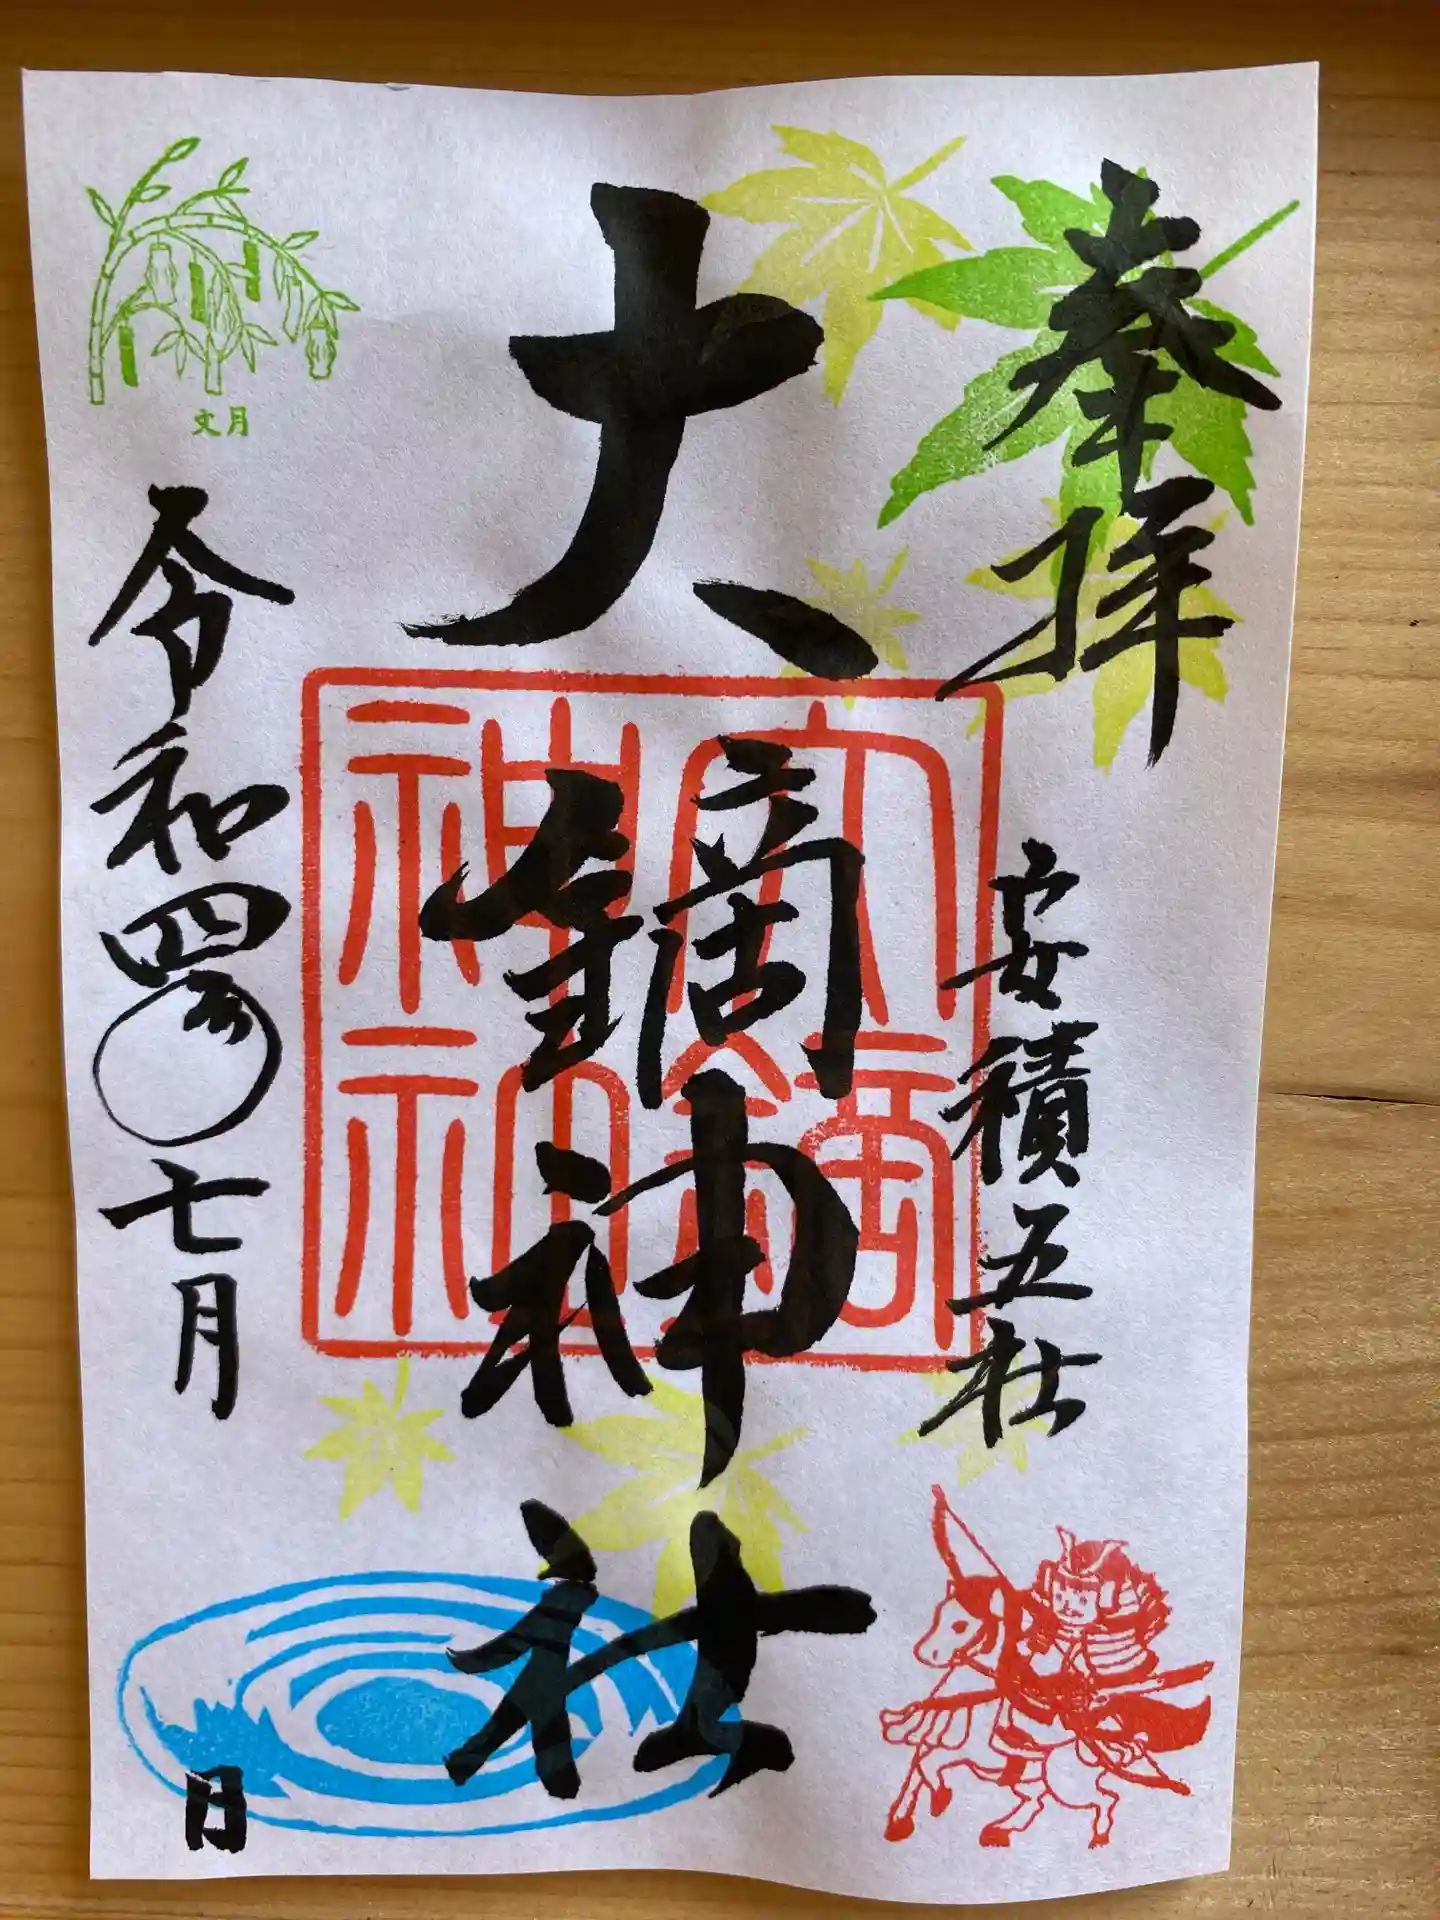 奉拝
安積五社
大鏑神社
大鏑神社
文月
令和四年七月
日